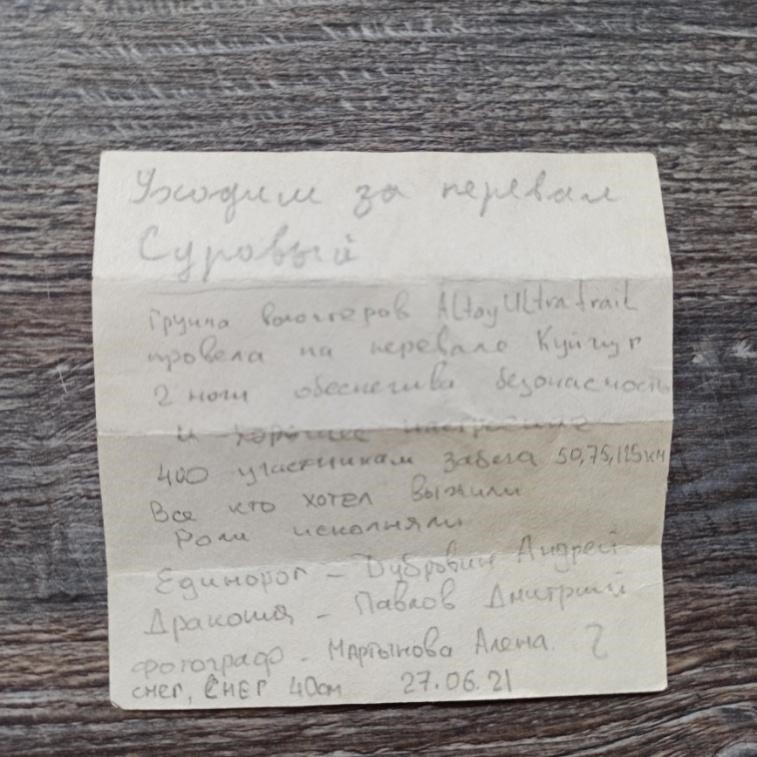 Уходим за перевал
Суровый
Группа волонтеров AltayUltratrail
провела на перевале Куйгук
2 ночи обеспечива безопасность
и хорошее настроение
400 участникам забега 50,75,125км
Все кто хотел выжили
Роли исполняли
Единорог - Дубровин Андрей
Дракоша - Павлов Дмитрий
фотограф - Мартынова Алена
снег, СНЕГ 40см 27.06.21